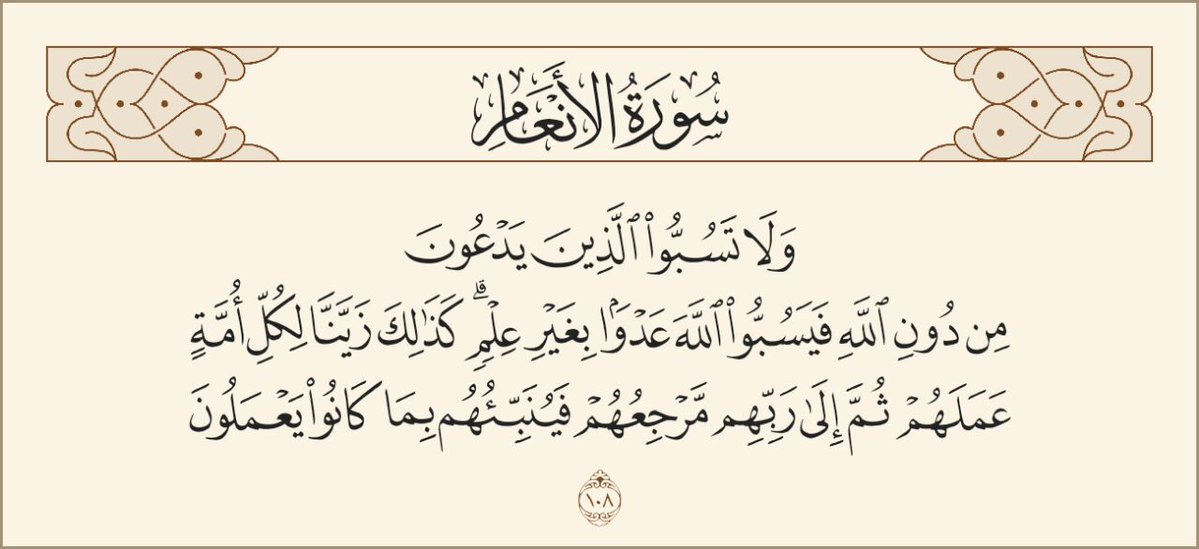 سُورَةُ الأَنْعَامِ
وَلَا تَسُبُّوا۟ ٱلَّذِينَ يَدْعُونَ
مِن دُونِ ٱللَّهِ فَيَسُبُّوا۟ ٱللَّهَ عَدْوًۢا بِغَيْرِ عِلْمٍۢ ۗ كَذَٰلِكَ زَيَّنَّا لِكُلِّ أُمَّةٍ
عَمَلَهُمْ ثُمَّ إِلَىٰ رَبِّهِم مَّرْجِعُهُمْ فَيُنَبِّئُهُم بِمَا كَانُوا۟ يَعْمَلُونَ
١٠٨